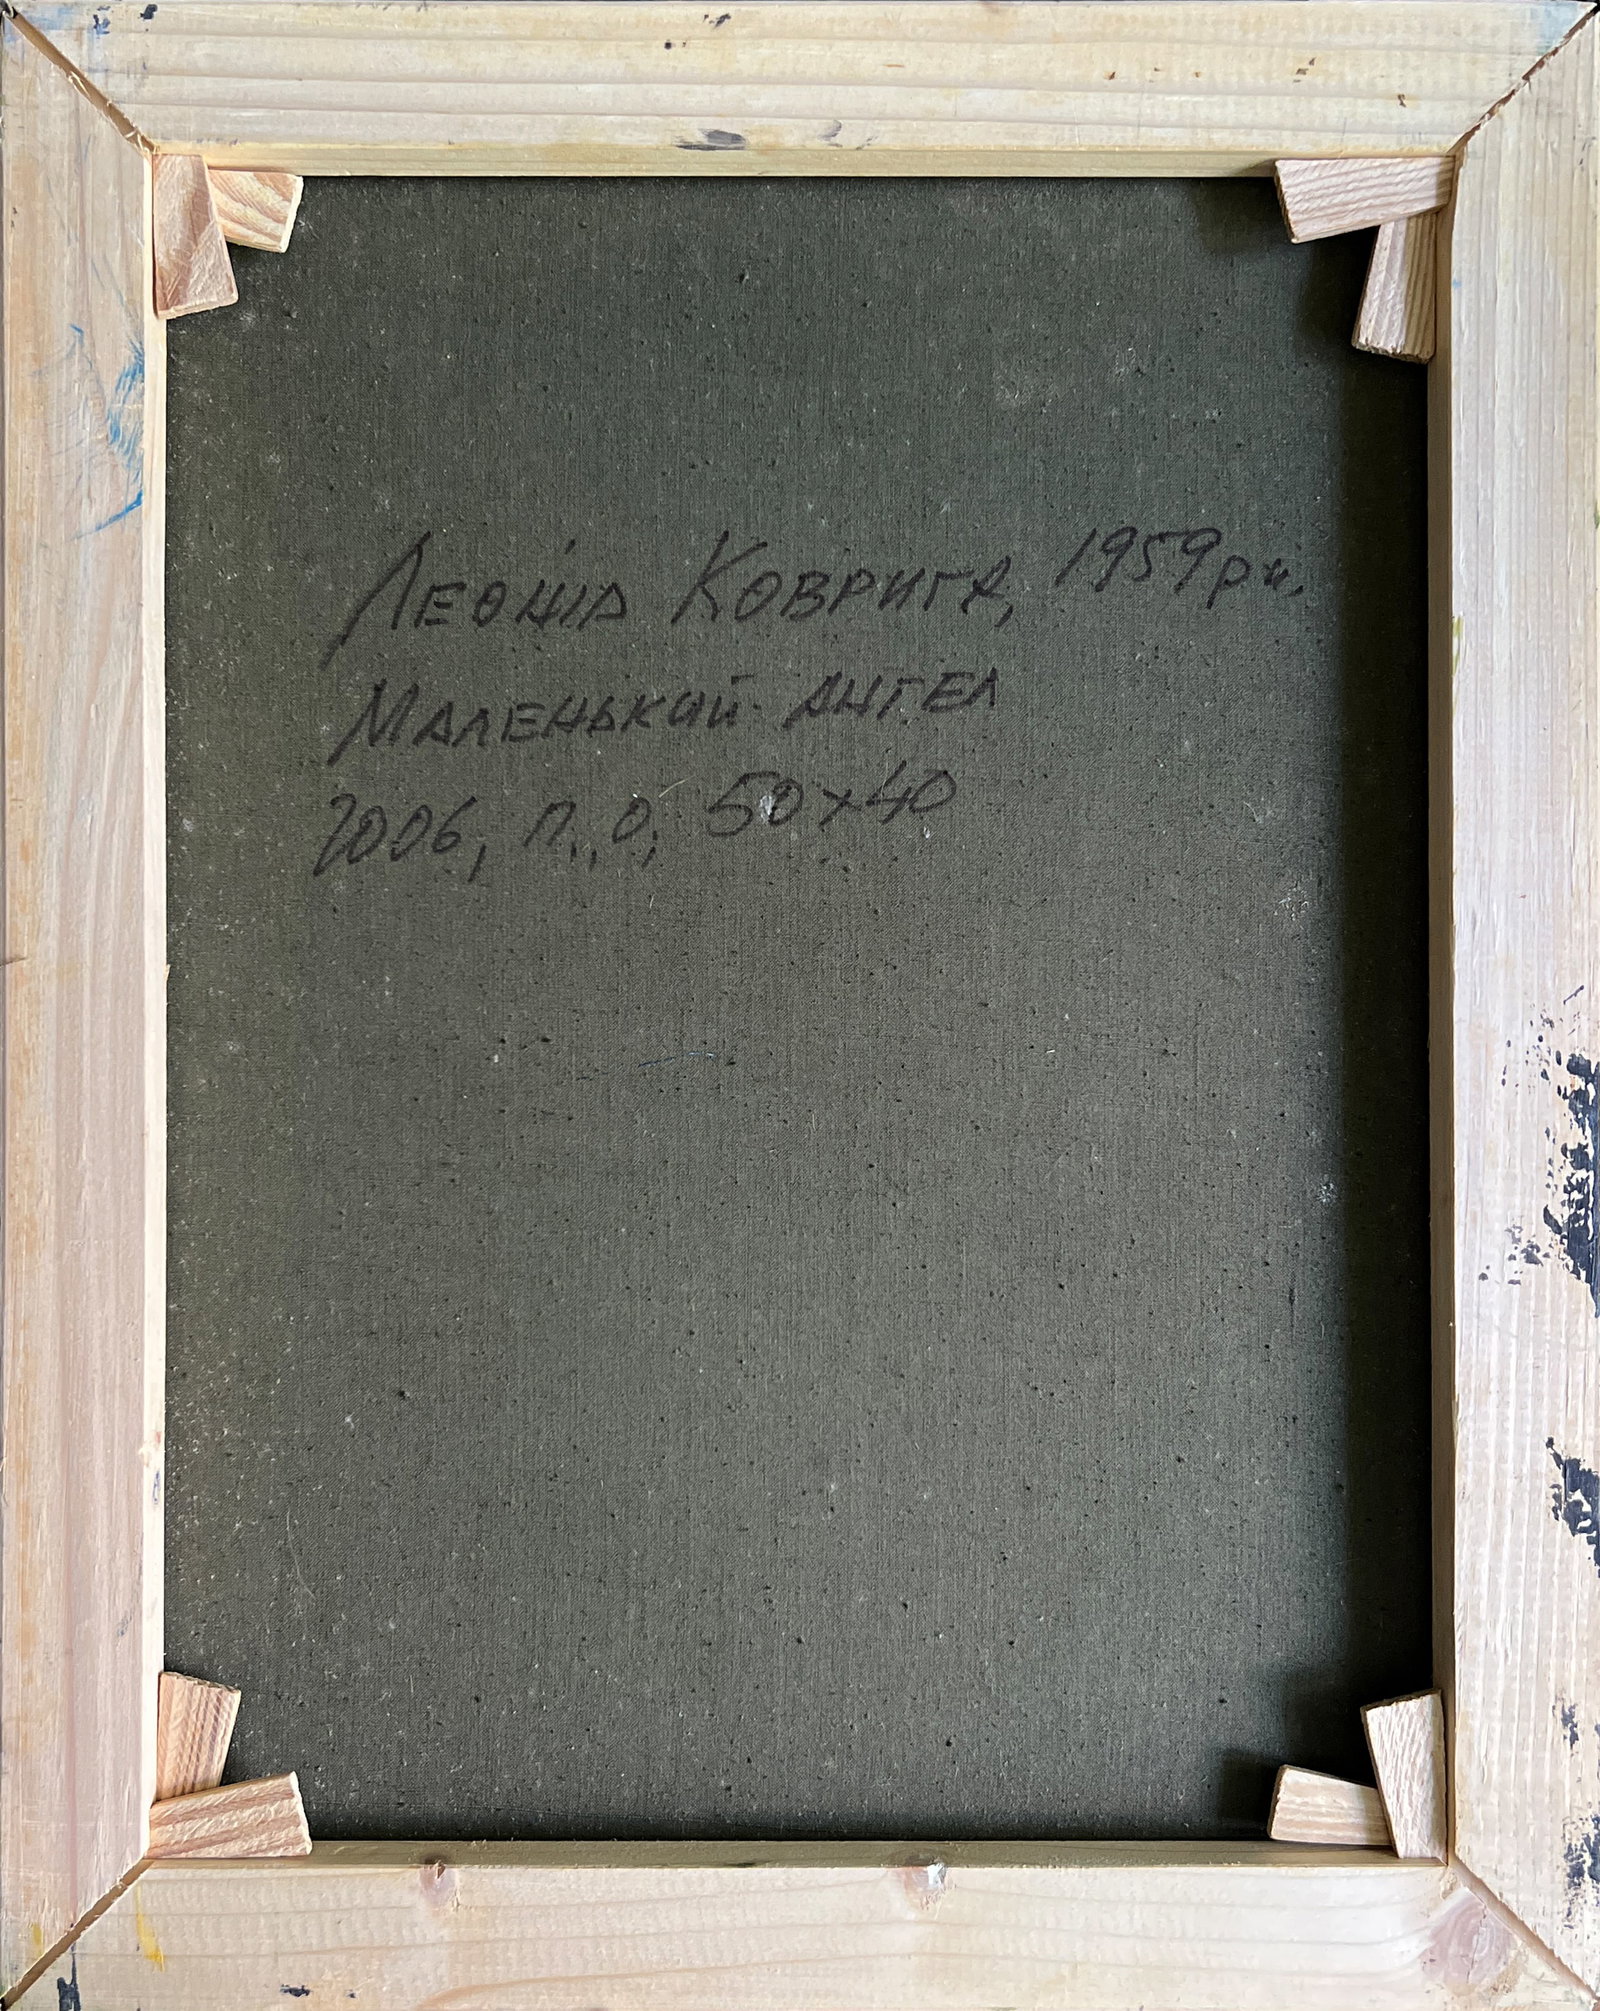 Леонід Коврига, 1959 р.н.
Маленький ангел
2006, п., о, 50х40